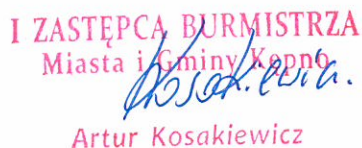 I ZASTĘPCA BURMISTRZA
Miasta i Gminy Kępno
Kosakiewicz.
Artur Kosakiewicz